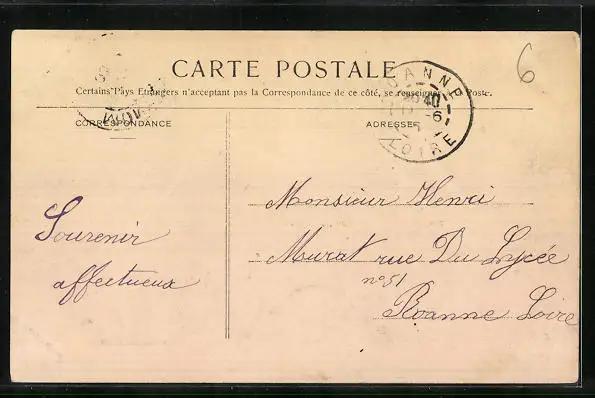 6
CARTE POSTALE
Certains Pays Etrangers n'acceptent pas la Correspondance de ce côté, se renseigner à la Poste.
CORRESPONDANCE
ADRESSE
ROANNE
LOIRE
Souvenir
affectueux
Monsieur Henri
Murat rue Du Lycée
n° 51
Roanne Loire